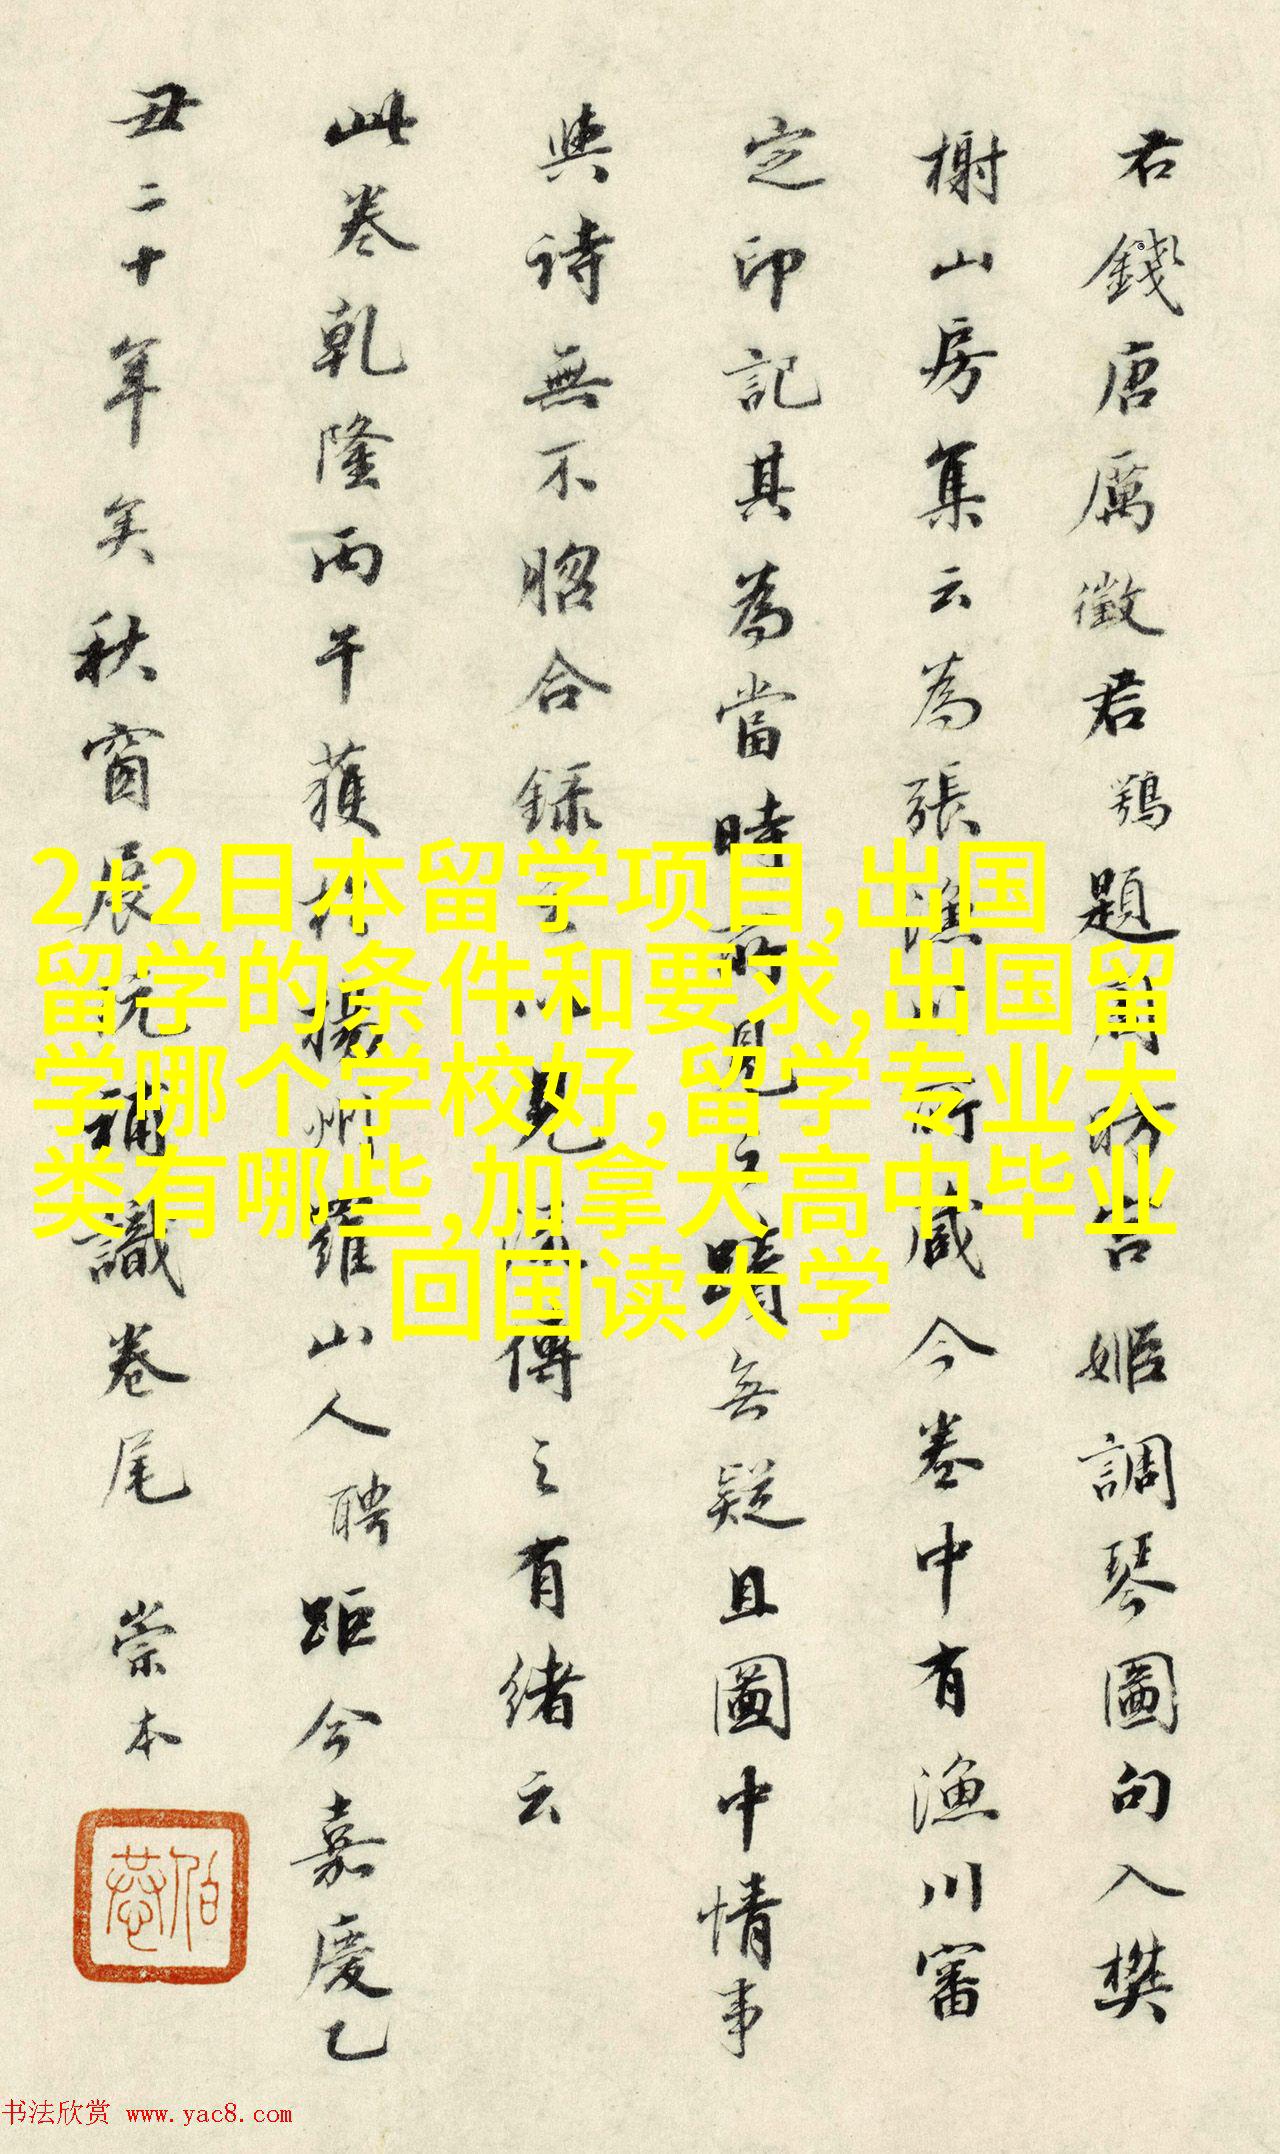 右錢唐厲徵君鶚題周昉姬調琴圖句入樊
榭山房集云為張漁川所藏今卷中有漁川審
定印記其為當時所見之蹟無疑且圖中情事
與詩無不脗合錄以見流傳之有緒云
此卷乾隆丙午獲於揚州羅山人聘距今嘉慶乙
丑二十年矣秋窗展玩補識卷尾 崇本
伯恭
2+2日本留学项目,出国
留学的条件和要求,出国留
学哪个学校好,留学专业大
类有哪些,加拿大高中毕业
回国读大学
书法欣赏 www.yac8.com